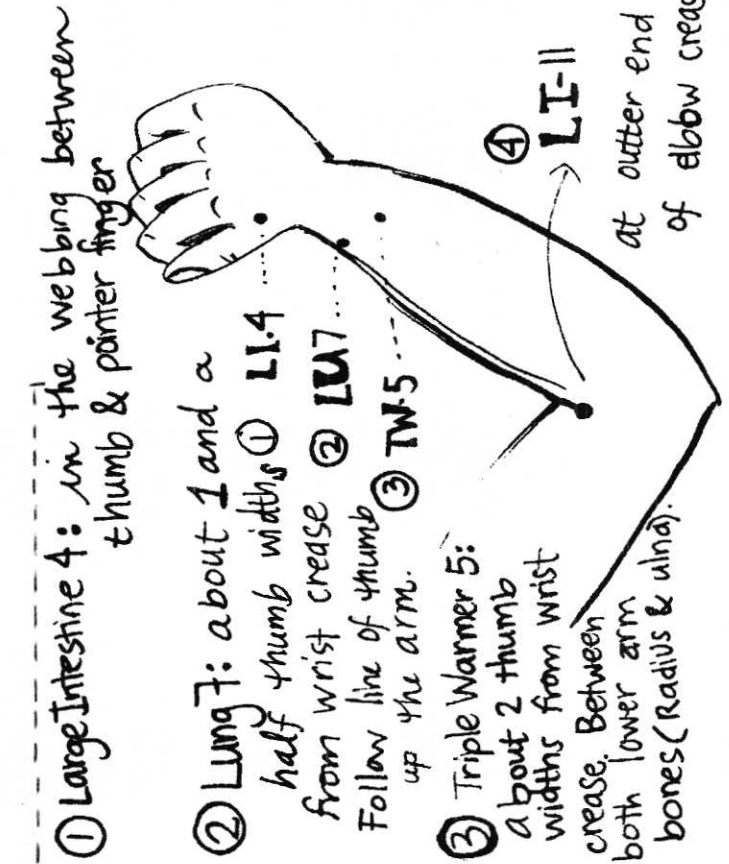 ① Large Intestine 4: in the webbing between
thumb & pointer finger
② Lung 7: about 1 and a
half thumb widths
from wrist crease
Follow line of thumb
up the arm.
③ Triple Warmer 5:
about 2 thumb
widths from wrist
crease. Between
both lower arm
bones (Radius & ulna).
① LI.4
② LU7
③ TW.5
④
LI-11
at outter end
of elbow creas